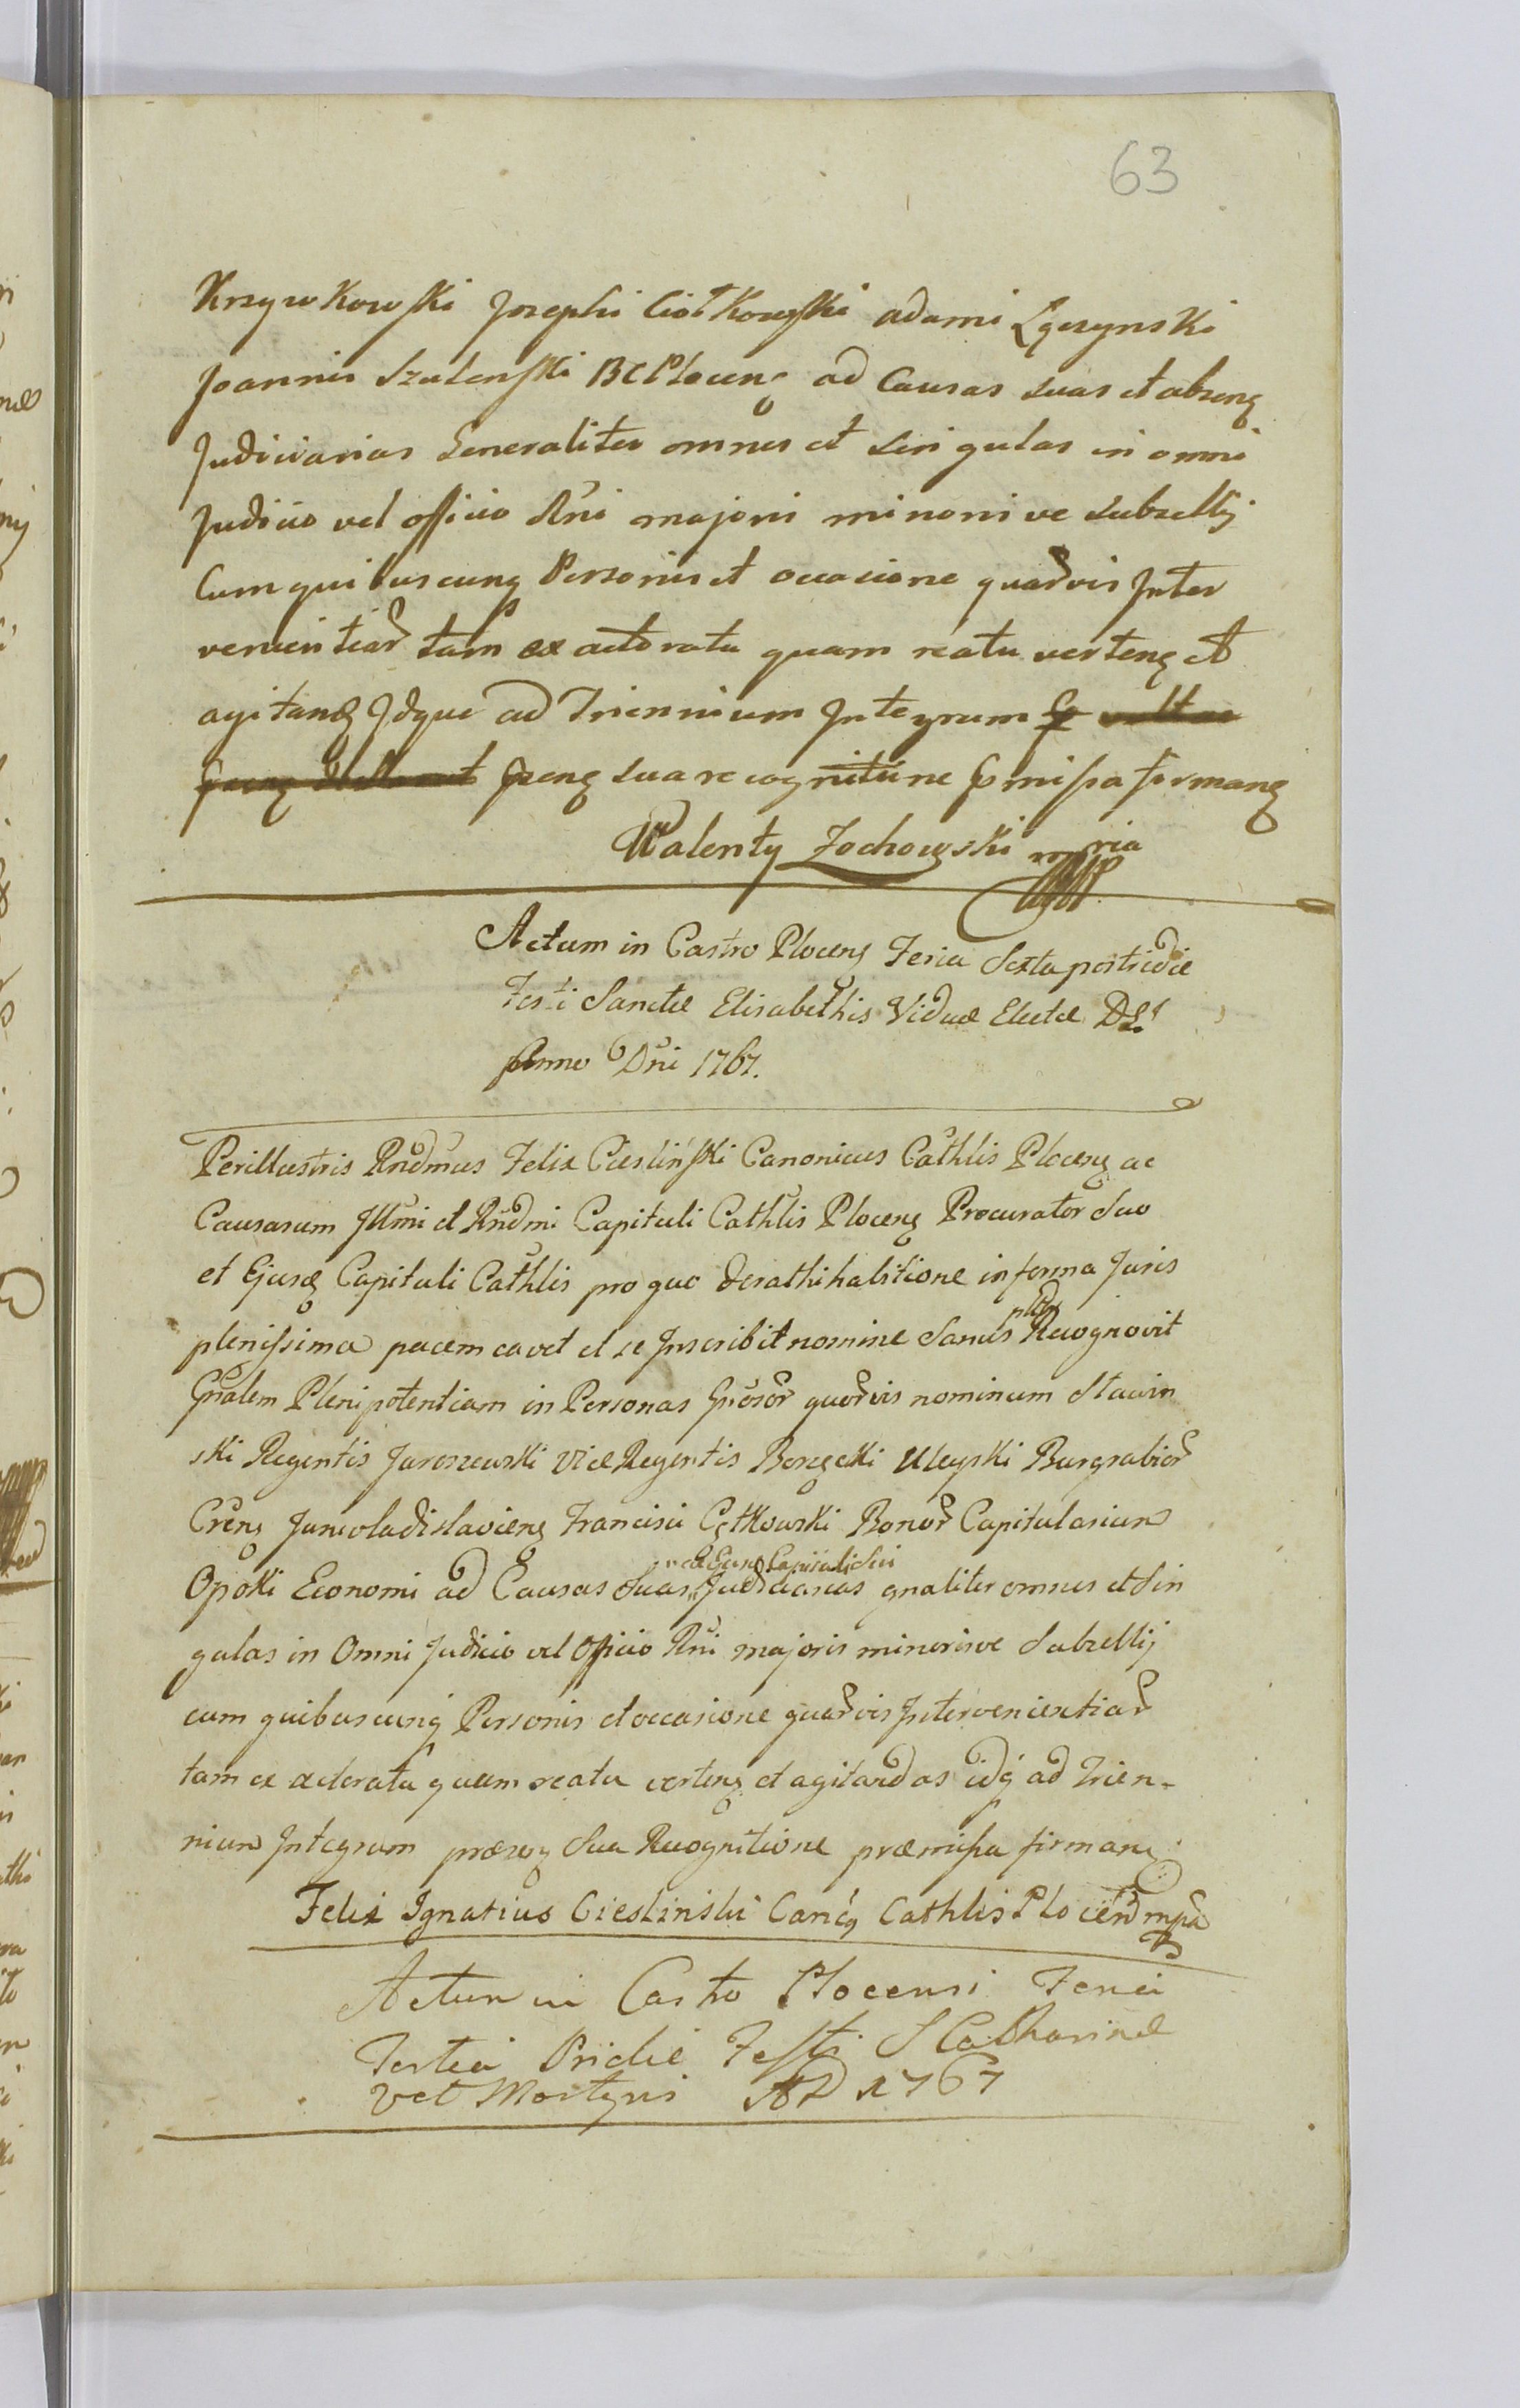 63
Krzywkowski Josephi Ciołkowski Adami Łączynski
Joannis Szulenski BCPlocens ad Causas suas et absens
Judiciarias Generaliter omnes et singulas in omni
Judicio vel officio Rñi majori minori ve Subsellij
Cum quibuscunq Personis et occasione quarvis Inter
venientiar tam ex actoratu quam reatu vertens et
agitand Idque ad Triennium Integrum
psens sua recognitione pmissa firmans
Walenty Zochowski mpria
Actum in Castro Plocens Feria Sexta postridie
Festi Sanctæ Elisabethis Viduæ Electæ
Anno Dñi 1767.
Perillustris Rñdmus Felix Ciesliński Canonicus Cathlis Plocens ac
Causarum Illmi et Rñdmi Capituli Cathlis Plocens Procurator Suo
et Ejusd Capituli Cathlis pro quo de rathihabitione in forma Juris
plenissima pacem cavet et se Inscribit nomine Sanus Recognovit
Gñalem Plenipotentiam in Personas Gñosor quorvis nominum Stawin
ski Regentis Jaroszewski Vice Regentis Borzęcki Uleyski Burgrabior
Crens Junivladislaviens Francisci Cętkowski Bonor Capitularium
Opoki Economi ad Causas Suas et Ejusd Capituli Sui Judiciarias gnaliter omnes et Sin
gulas in Omni Judicio vel Officio Rñi majoris minorisve Subsellij
cum quibuscunq Personis et occasione quarvis Intervenientiar
tam ex actoratu quam reatu vertens et agitandas idq ad Trien-
nium Integrum præsens Sua Recognitione præmissa firmans
Felix Ignatius Cieslinski Canc Cathlis Plocens mpa
Actum in Castro Plocensi Feria
Tertia Pridie Festi S Catharinæ
V et Martyris AD 1767